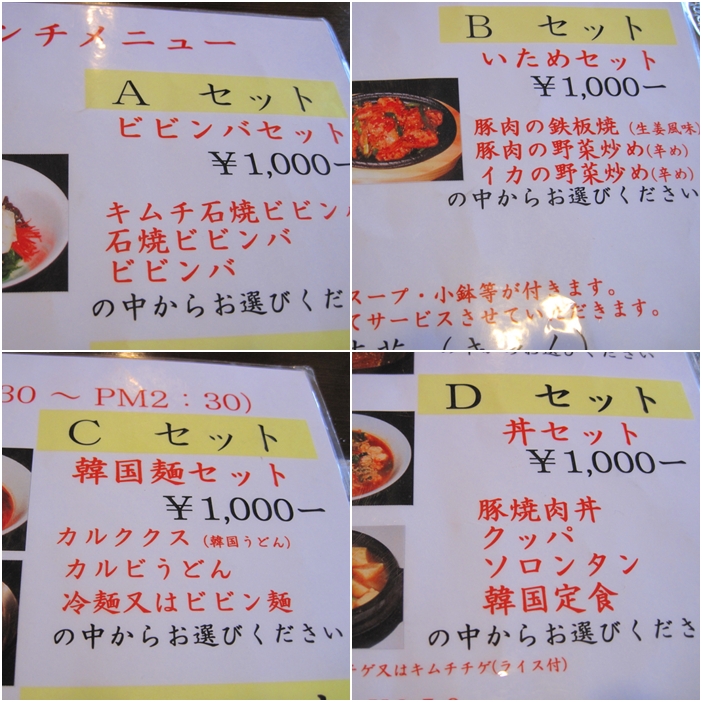 ンチメニュー
A セット
ビビンバセット
￥1,000ー
キムチ石焼ビビンバ
石焼ビビンバ
ビビンバ
の中からお選びくだ
B セット
いためセット
￥1,000ー
豚肉の鉄板焼 (生姜風味)
豚肉の野菜炒め(辛め)
イカの野菜炒め(辛め)
の中からお選びください
スープ・小鉢等が付きます。
てサービスさせていただきます。
30 ～ PM2：30)
C セット
韓国麺セット
￥1,000ー
カルククス (韓国うどん)
カルビうどん
冷麺又はビビン麺
の中からお選びください
D セット
丼セット
￥1,000ー
豚焼肉丼
クッパ
ソロンタン
韓国定食
の中からお選びくださ
チゲ又はキムチチゲ(ライス付)